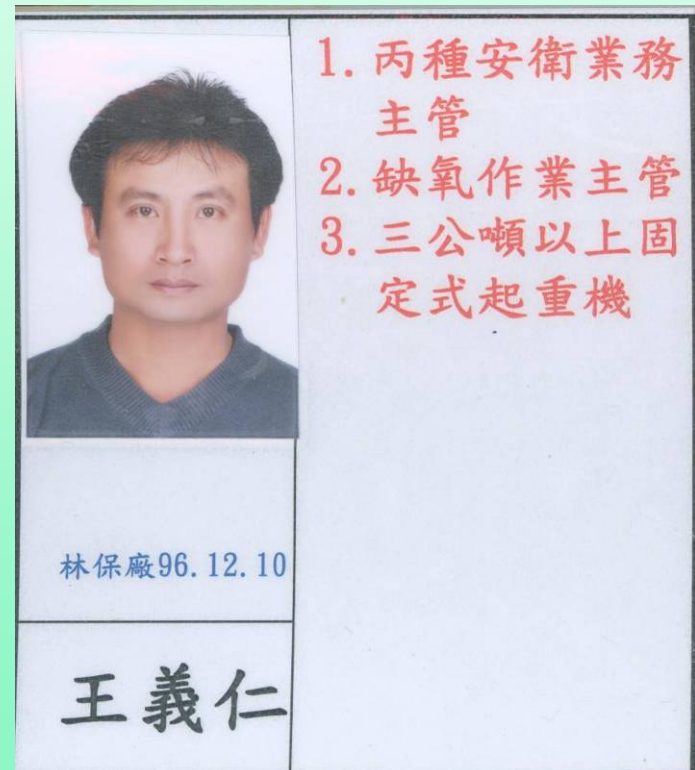 1. 丙種安衛業務
主管
2. 缺氧作業主管
3. 三公噸以上固
定式起重機
林保廠96.12.10
王義仁